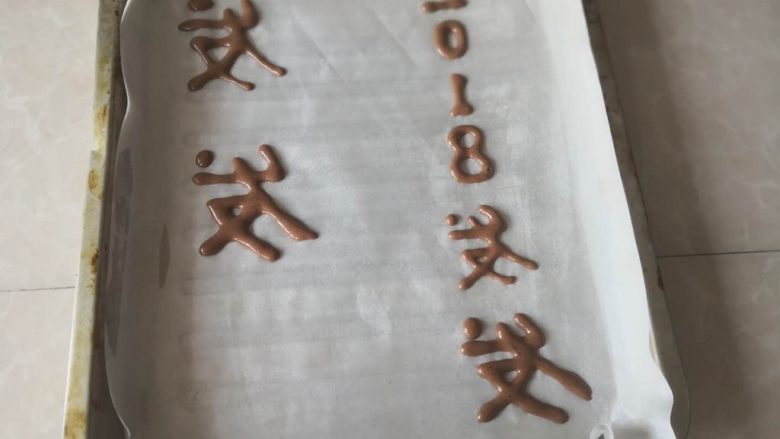 018发发
发发